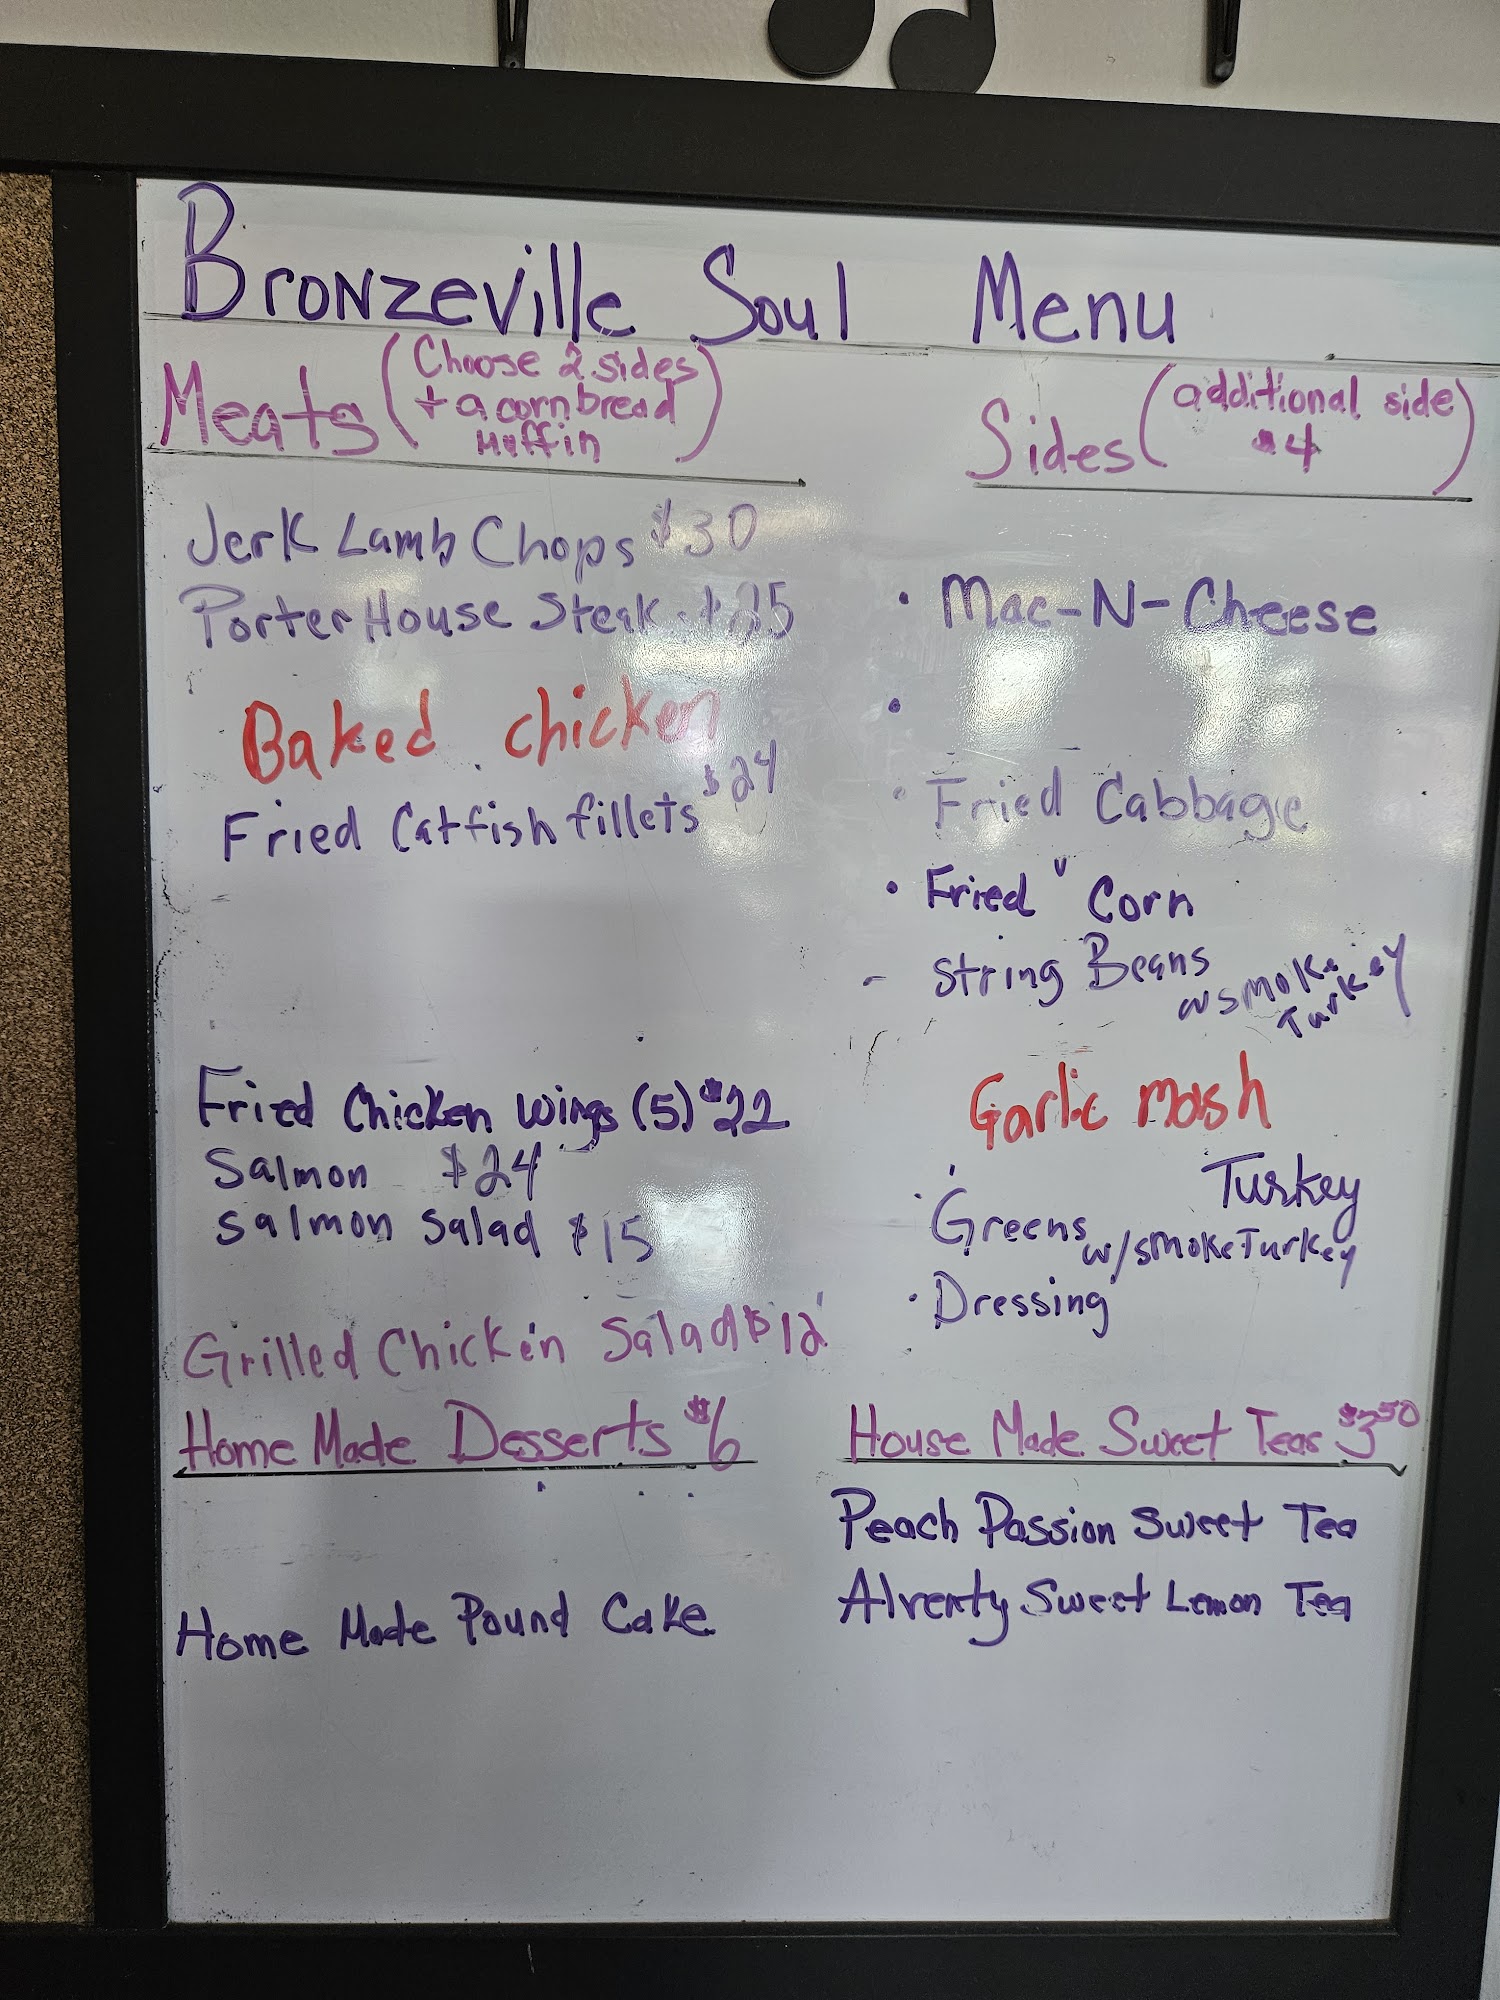 Bronzeville Soul Menu
Meats (Choose 2 sides
+ a cornbread
Muffin)
Jerk Lamb Chops $30
Porter House Steak
Baked chicken
$24
Fried Catfish fillets
Fried Chicken Wings (5) $22
Salmon $24
Salmon Salad $15
Grilled Chicken Salad $12
Home Made Desserts $6
Home Made Pound Cake
Sides (additional side
$4)
• Mac-N-Cheese
•
• Fried Cabbage
• Fried Corn
- String Beans
w smoke
Turkey
Garlic mash
Turkey
• Greens w/smoke Turkey
• Dressing
House Made Sweet Teas $3.50
Peach Passion Sweet Tea
Sweet Lemon Tea